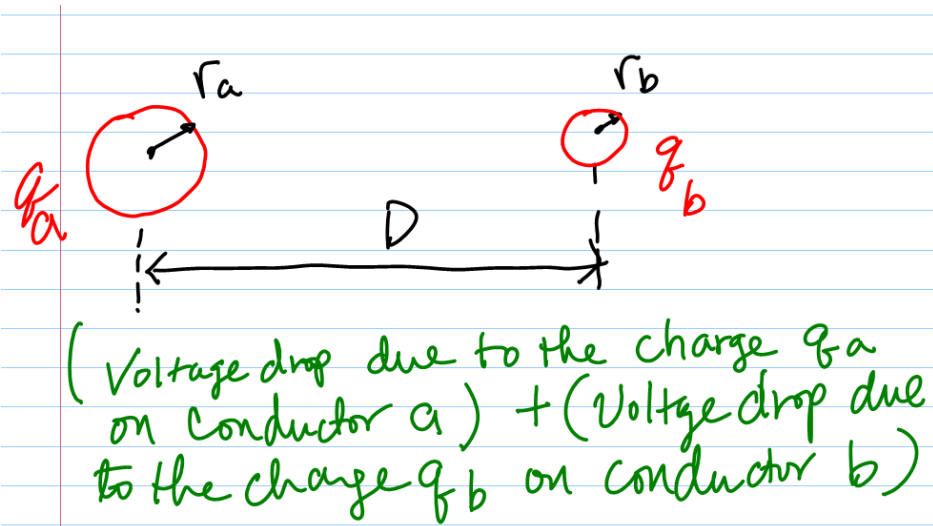 ra
rb
qa
qb
D
(Voltage drop due to the charge qa
on conductor a) + (Voltge drop due
to the charge qb on conductor b)